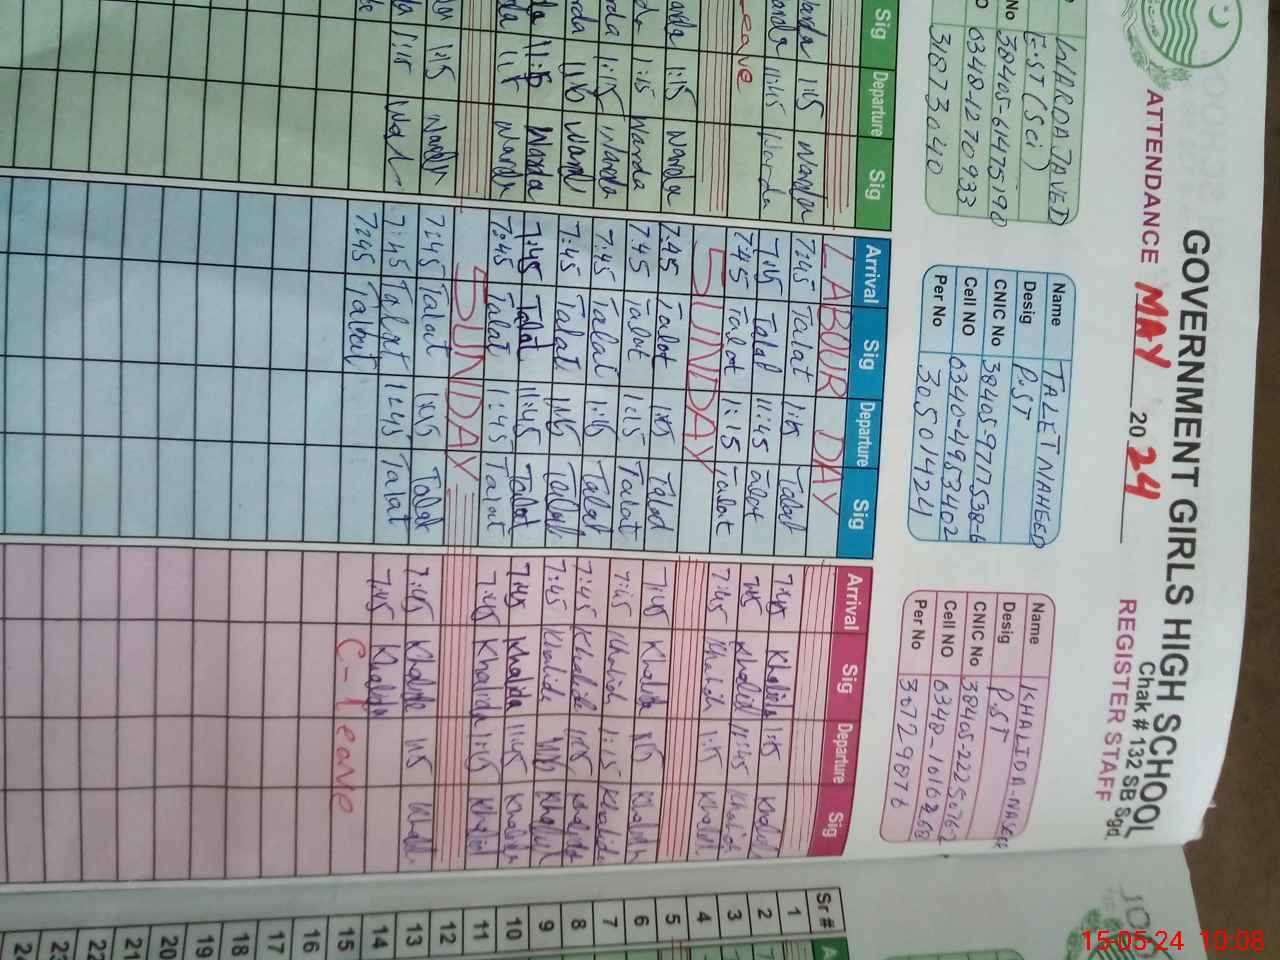 GOVERNMENT GIRLS HIGH SCHOOL
Chak # 132 SB Sgd
ATTENDANCE MAY 2024 REGISTER STAFF
WARDA JAVED
EST (Sci)
No 38405-6147519-0
0348-1270933
31873040
Name TALET NAHEED
Desig P.ST
CNIC No 38405-9717538-6
Cell NO 0340-4953402
Per No 30501424
Name KHALIDA-
Desig P.ST
CNIC No
Cell NO
Per No
Sig Departure Sig Arrival Sig Departure Sig Arrival Sig Departure Sig
LABOUR DAY
Warda 1:15 Warda 7:45 Talat 1:15 Talat 7:45 Khalida 1:15 Khalida
Warda 11:45 Warda 7:45 Talat 11:45 Talat 7:45 Khalida 11:45 Khalida
Leave 7:45 Talat 1:15 Talat 7:45 Khalida 1:15 Khalida
SUNDAY
Warda 1:15 Warda 7:45 Talat 1:15 Talat 7:45 Khalida 1:15 Khalida
1:15 Warda 7:45 Talat 1:15 Talat 7:45 Khalida 1:15 Khalida
1:15 Warda 7:45 Talat 1:15 Talat 7:45 Khalida 1:15 Khalida
1:15 Warda 7:45 Talat 1:15 Talat 7:45 Khalida 1:15 Khalida
11:45 Warda 7:45 Talat 11:45 Talat 7:45 Khalida 11:45 Khalida
Warda 7:45 Talat 11:45 Talat 7:45 Khalida 1:15 Khalida
SUNDAY
1:15 Warda 7:45 Talat 1:15 Talat 7:45 Khalida 1:15 Khalida
1:15 7:45 Talat 11:45 Talat 7:45 Khalida
7:45 Talat C-leave
Sr #
1
2
3
4
5
6
7
8
9
10
11
12
13
14
15
16
17
18
19
20
21
22
23
24
15-05-24 10:08